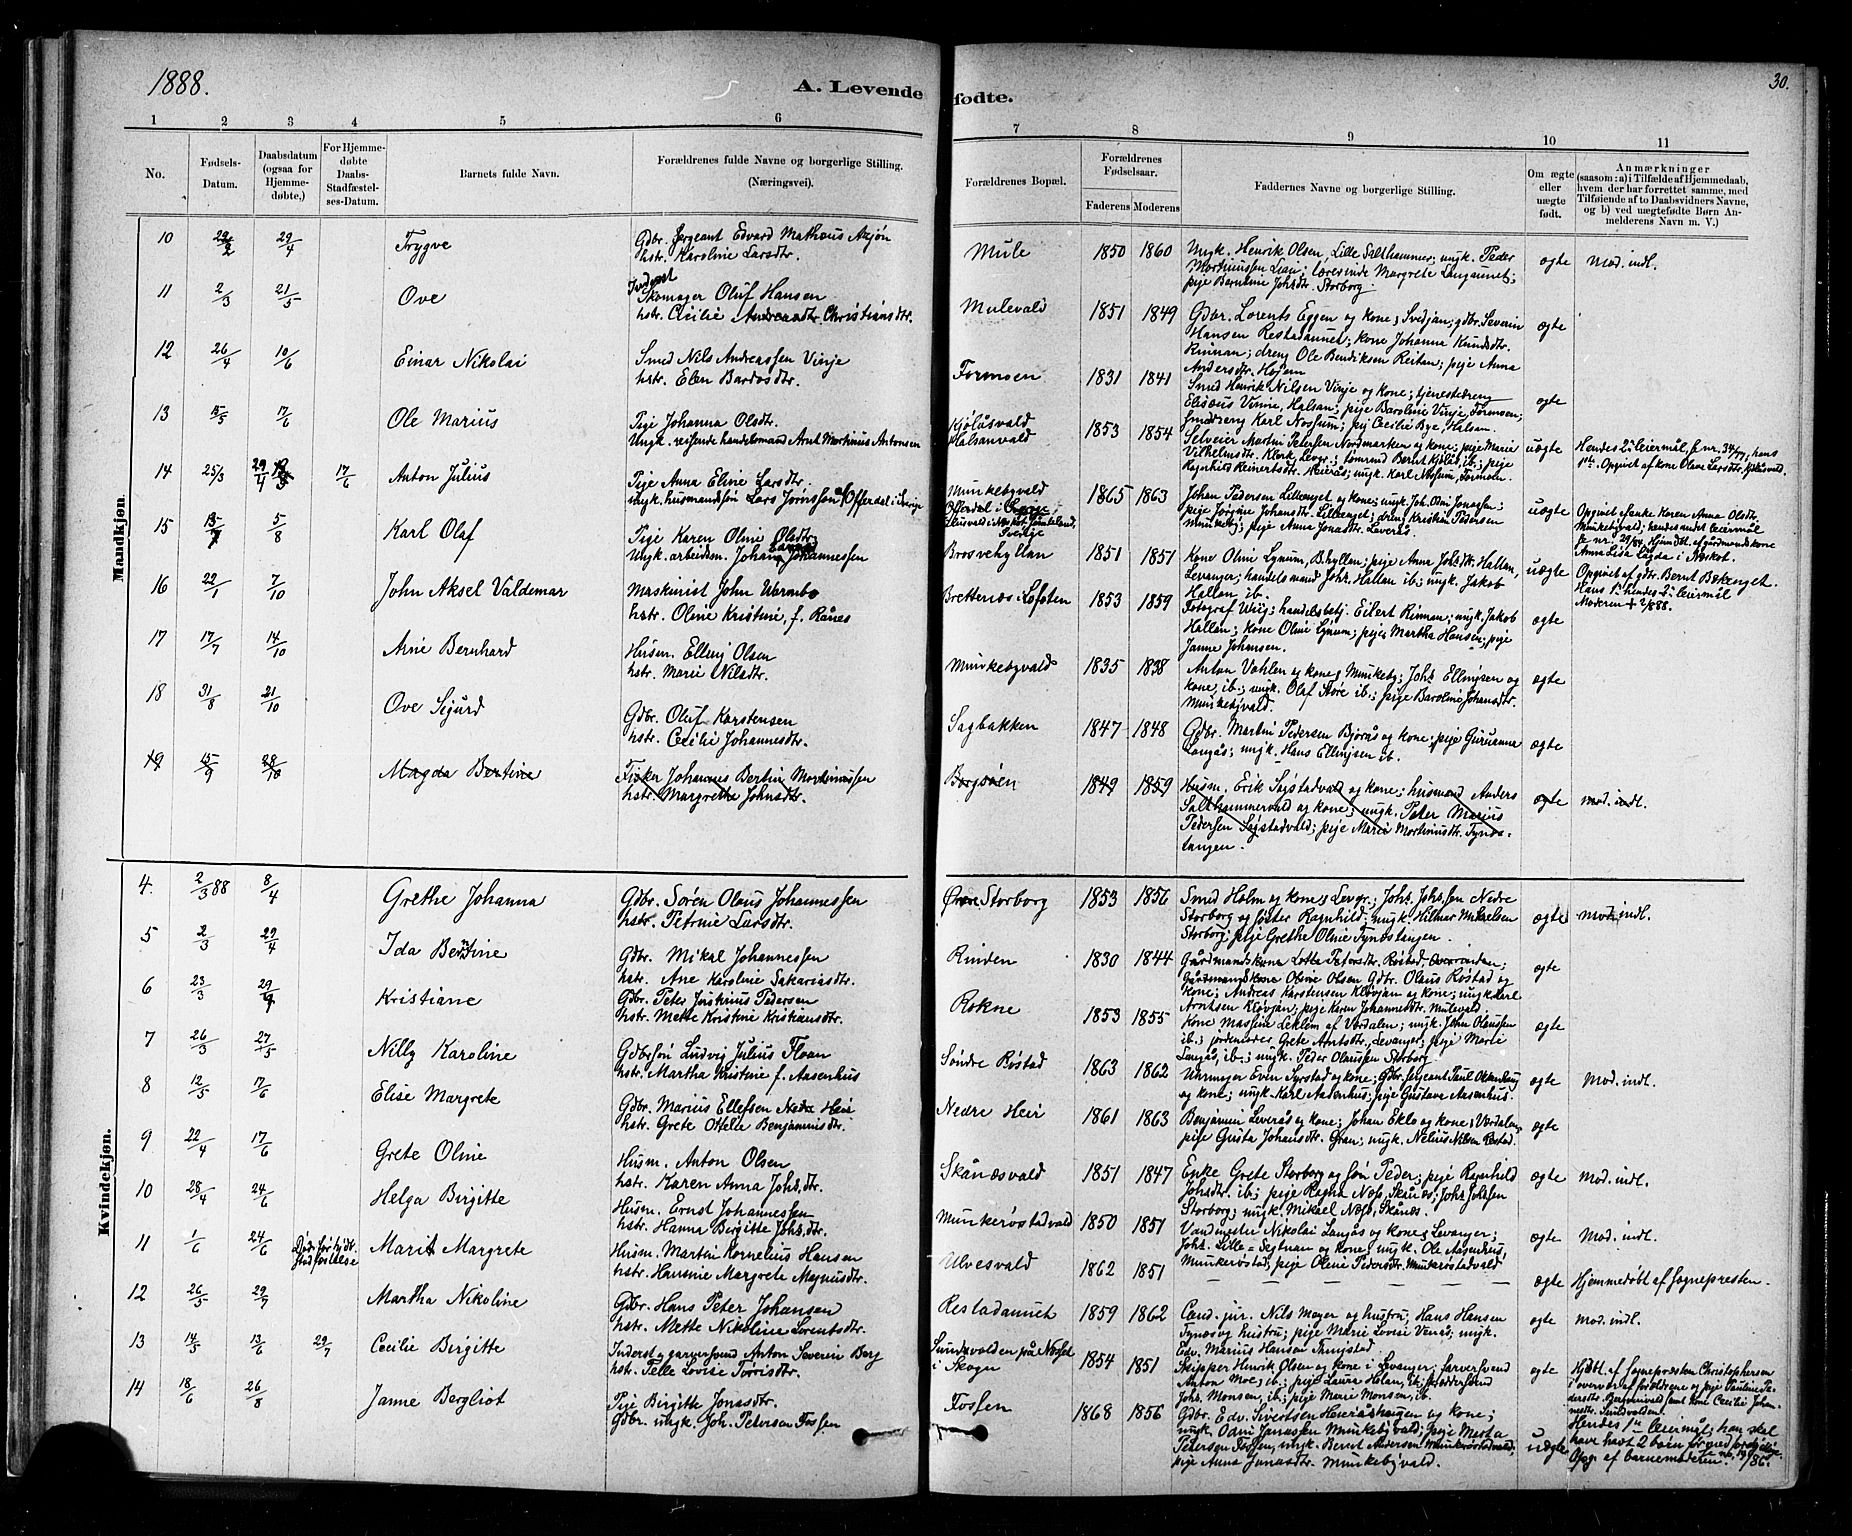 1888.
A. Levende
fødte.
30.
1 2 3 4 5 6 7 8 9 10 11
No.
Fødsels-Datum.
Daabsdatum (ogsaa for Hjemmedøbte,)
For Hjemmedøbte Daabs-Stadfæstelses-Datum.
Barnets fulde Navn.
Forældrenes fulde Navne og borgerlige Stilling. (Næringsvei).
Forældrenes Bopæl.
Forældrenes Fødselsaar.
Faderens Moderens
Faddernes Navne og borgerlige Stilling.
Om ægte eller uægte født.
Anmærkninger
(saasom: a) i Tilfælde af Hjemmedaab, hvem der har forrettet samme, med Tilføiende af to Daabsvidners Navne, og b) ved uægtefødte Børn Anmelderens Navn m. V.)
Mandkjøn.
10 29/2 29/4 Trygve
Gdbr. Sergeant Edvard Mathæus
hstr. Karoline Larsdtr.
Mule 1850 1860
Ungk. Henrik Olsen, Lille Salthammer; ungk. Peder
pije Berntine Johsdtr. Storborg.
ægte Mod. indl.
11 2/3 21/5 Ove
Inderst
Skomager Oluf Hansen
hstr. Cecilie Andreasdtr. Christiansdtr.
Mulevald 1851 1849
Gdbr. Lorents Eggen og kone, Svedjan; gdbr. Severin
Hansen Restadaunet; kone Johanna Knudsdtr.
Rinnan; dreng Ole Bendiksen Reitan; pije Anna
Andersdtr. Hojem
ægte
12 26/4 10/6 Einar Nikolai
Smed Nils Andreassen Vinje
hstr. Elen Bardosdtr.
Formoen 1831 1841
Smed Henrik Nilsen Vinje og kone; tjenestedreng
Elisæus Vinne, Halsan; pije Baroline Vinje, Formoen;
Smeddreng Karl Nossum; pij Cecilie Bye Halsan.
ægte
13 15/5 17/6 Ole Marius
Pige Johanna Olsdtr.
Ungk. reisende handelsmand Arnt Martinus Antonsen
Kjølåsvald
Halsanvald
1853 1854
Selveier Martin Petersen Nordmarken og kone; pije Marie
Vilhelmsdtr. Klerk, Levgr.; tømrmd Bernt Kjølås, ib.; pije
uægte
14 25/3 29/4 17/6 Anton Julius
Pige Anna Eline Larsdtr.
ungk. husmandssøn Lars Jonsson, Offerdal i Sverige
Munkebyvald
1865 1863
Johan Pedersen Lillenget og kone; ungk. Joh. Odin Jonassen;
pije Jørgine Johansdtr. Lillenget; dreng Kristian Pedersen
Munkeby; pije Anna Jonasdtr. Leverås.
uægte
Opgivet af enke Karen Anna Olsdtr.
Munkebyvald; hendes andet leiermål
se nr. 29/84. Hjemdbt. af gårdmandskone
Anna Lisa Lagda i Norskot.
15 13/7 5/8 Karl Olaf
Pige Karen Oline Olsdtr.
Ungk. arbeidsm. Johan Johannessen
Brosvehyllan 1851 1851
Kone Oline Lynum, Bhyllan; pije Anna Johsdtr. Hallan,
Levanger; handelsmand Johs. Hallan ib.; ungk. Jakob
Hallan ib.
uægte
Opgivet af gdbr. Bernt Bækenget.
Hans 1ste hendes 2det leiermål
Moderen + 2/888.
16 22/1 7/10 John Aksel Valdemar
Maskinist John Wormbo
hstr. Oline Kristine, f. Rånes
Brettenæs i Lofoten 1853 1859
Fotograf Wiig; handelsbetj. Eilert Rinnan; ungk. Jakob
Hallan; kone Oline Lynum; pije Martha Hansen; pije
Janne Johansen.
ægte
17 17/7 14/10 Arne Bernhard
Husm. Elling Olsen
hstr. Marie Nilsdtr.
Munkebyvald 1835 1838
Anton Vohlen og kone, Munkeby; Johs Ellingsen og
kone, ib.; ungk. Olaf Støre ib.; pije Baroline Johansdtr.
Munkebyvald.
ægte
18 31/8 21/10 Ove Sigurd
Gdbr. Oluf Karstensen
hstr. Cecilie Johannesdtr.
Sagbakken 1847 1848
Gdbr. Martin Pedersen Bjørås og kone; pije Gurianna
Langås; ungk. Hans Ellingsen ib.
ægte
19 15/9 28/10 Magda Bertine
Fisker Johannes Bertin Mortinussen
hstr. Margrethe Johnsdtr.
Borgsøen 1849 1859
Husm. Erik Søgstadvald og kone; husmand Anders
Salthammervald og kone; ungk. Peter Marius
Pedersen Sogstadvald; pije Marie Mortinusdtr. Tynes-
tangen.
ægte mod. indl.
Kvindekjøn.
4. 2/3 88 8/4 Grethe Johanna
Gdbr. Søren Olaus Johannessen
hstr. Petrine Larsdtr.
Øvre Storborg 1853 1856
Smed Holm og kone, Levgr.; Johs. Johssen Nedre
Storborg og søster Ragnhild; ungk. Hilmar Mikelsen
Storborg; pije Grethe Oline Tynestangen.
ægte mod. indl.
5 2/3 29/4 Ida Bertine
Gdbr. Mikal Johannessen
hstr. Ane Karoline Sakariasdtr.
Rinden 1830 1844
Gårdmandskone Lotte Petersdtr. Røstad, Overrinden;
Gårdmandskone Oline Olsen Gdbr. Olaus Røstad og
ægte
6 23/3 29/4 Kristiane
Gdbr. Peter Justinus Pedersen
hstr. Mette Kristine Kristiansdtr.
Rokne 1853 1855
kone; Andreas Karstensen Kløvjan og kone; ungk. Karl
Arntsen Kløvjan; pije Karen Johannesdtr. Mulevald.
ægte
7 26/3 27/5 Nilly Karoline
Gdbrsøn Ludvig Julius Floan
hstr. Martha Kristine f. Aasenhus
Søndre Røstad 1863 1862
Kone Massine Leklem af Verdalen; ungk. John Olaussen
ib.; jordemoder Grete Arntsdtr., Levanger; pije Marie
Langås, ib.; ungk. Peder Olaussen Storborg.
Uhrmager Even Syrstad og kone; Gdbr. sergeant Paul Okkenhaug
og kone; ungk. Karl Aasenhus; pije Gustava Aasenhus.
ægte Mod. indl.
8 12/5 17/6 Elise Margrete
Gdbr. Marius Ellefsen Nedre Heir
hstr. Grete Otelie Benjaminsdtr.
Nedre Heir 1861 1863
Benjamin Leverås og kone; Johan Eklo og kone, Verdalen;
pije Gusta Johansdtr. Gran; ungk. Nelius Nilsen Røstad.
ægte
9 22/4 17/6 Grete Oline
Husm. Anton Olsen
hstr. Karen Anna Johs.dtr.
Skånæsvald 1851 1847
Enke Grete Storborg og søn Peder; pije Ragnhild
Johsdtr. ib.; pije Ragna Næss, Skånæs; Johs Johssen
Storborg; ungk. Mikael Næss, Skånæs.
ægte Mod. indl.
10 28/4 24/6 Helga Birgitte
Husm. Ernst Johannessen
hstr. Hanna Birgitte Johs.dtr.
Munkerøstadvald 1850 1851
Vandmester Nikolai Langås og kone, Levanger;
Johs. Lille-Segtnan og kone; ungk. Ole Aasenhus,
Munkerøstad; pije Oline Pedersdtr. Munkerøstadvald
ægte Mod. indl.
11 1/6 24/6 Marit Margrete
Husm. Martin Kornelius Hansen
hstr. Hansine Margrete Magnusdtr.
Ulvesvald 1862 1851
ægte Hjemmedøbt af sognepresten.
12 26/5 29/7 Martha Nikoline
Gdbr. Hans Peter Johansen
hstr. Mette Nikoline Lorentsdtr.
Restadaunet 1859 1862
Cand. jur. Nils Mayer og hustru; Hans Hansen
Tynæs og hustru; pije Marie Lovise Venås; ungk.
Edv. Marius Hansen Tingstad.
ægte mod. indl.
13 14/5 13/6 29/7 Cecilie Birgitte
Inderst og garversvend Anton Severin Berg
hstr. Pelle Lovise Torrisdtr.
Sundsvolden på Næsset
i Skogn
1854 1851
Skipper Henrik Olsen og kone i Levanger; farversvend
Anton Moe, ib.; pije Laura Holan, ib.; skreddersvend
Johs. Monsen, ib.; pije Marie Monsen, ib.
ægte
Hjdbt. af sognepresten Christophersen
i overvær af forældrene og pije Pauline Pe-
14 18/6 26/8 Janne Bergliot
Pije Birgitte Jonasdtr.
Gdbr. ungk. Joh. Petersen Fossen
Fossen 1868 1856
Gdbr. Edv. Sivertsen Heieråshaugen og kone;
ungk. Odin Jonassen Munkebyvald; pije Marta
Petersen Fossen, ungk. Bernt Andersen Munkerøstadvald;
pije Anna Jonasdtr. Munkebyvald.
uægte
Hendes 1ste leiermål; han skal
have havt 2 børn før med forskjellige.
Opg. af barnemoderen. se no. 19/86.